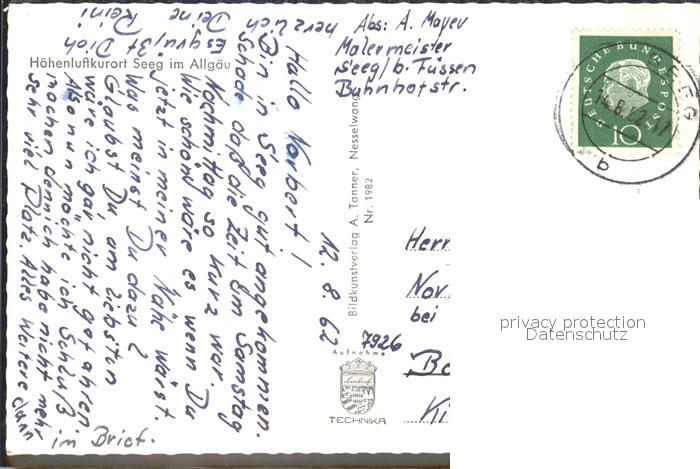 Höhenluftkurort Seeg im Allgäu
Abs: A. Mayer
Malermeister
Seeg/b. Füssen
Bahnhofstr.
DEUTSCHE BUNDESPOST
10
14.8.62-17
b
12.8.62
Hallo Norbert!
Bin in Seeg gut angekommen.
Schade daß die Zeit am Samstag
Nachmittag so kurz war.
Wie schön wäre es wenn Du
jetzt in meiner Nähe wärst.
Was meinst Du dazu?
Glaubst Du am liebsten
wäre ich gar nicht gefahren
Also nun möchte ich Schluß
machen denn ich habe nicht mehr
sehr viel Platz. Alles Weitere dann
im Brief.
Es grüßt Dich
herzlich
Deine Reini
Bildkunstverlag A. Tanner, Nesselwang
Nr. 1982
7926
Aufnahme
Linhof
TECHNIKA
Herrn
Nor
bei
Bo
Ki
privacy protection
Datenschutz